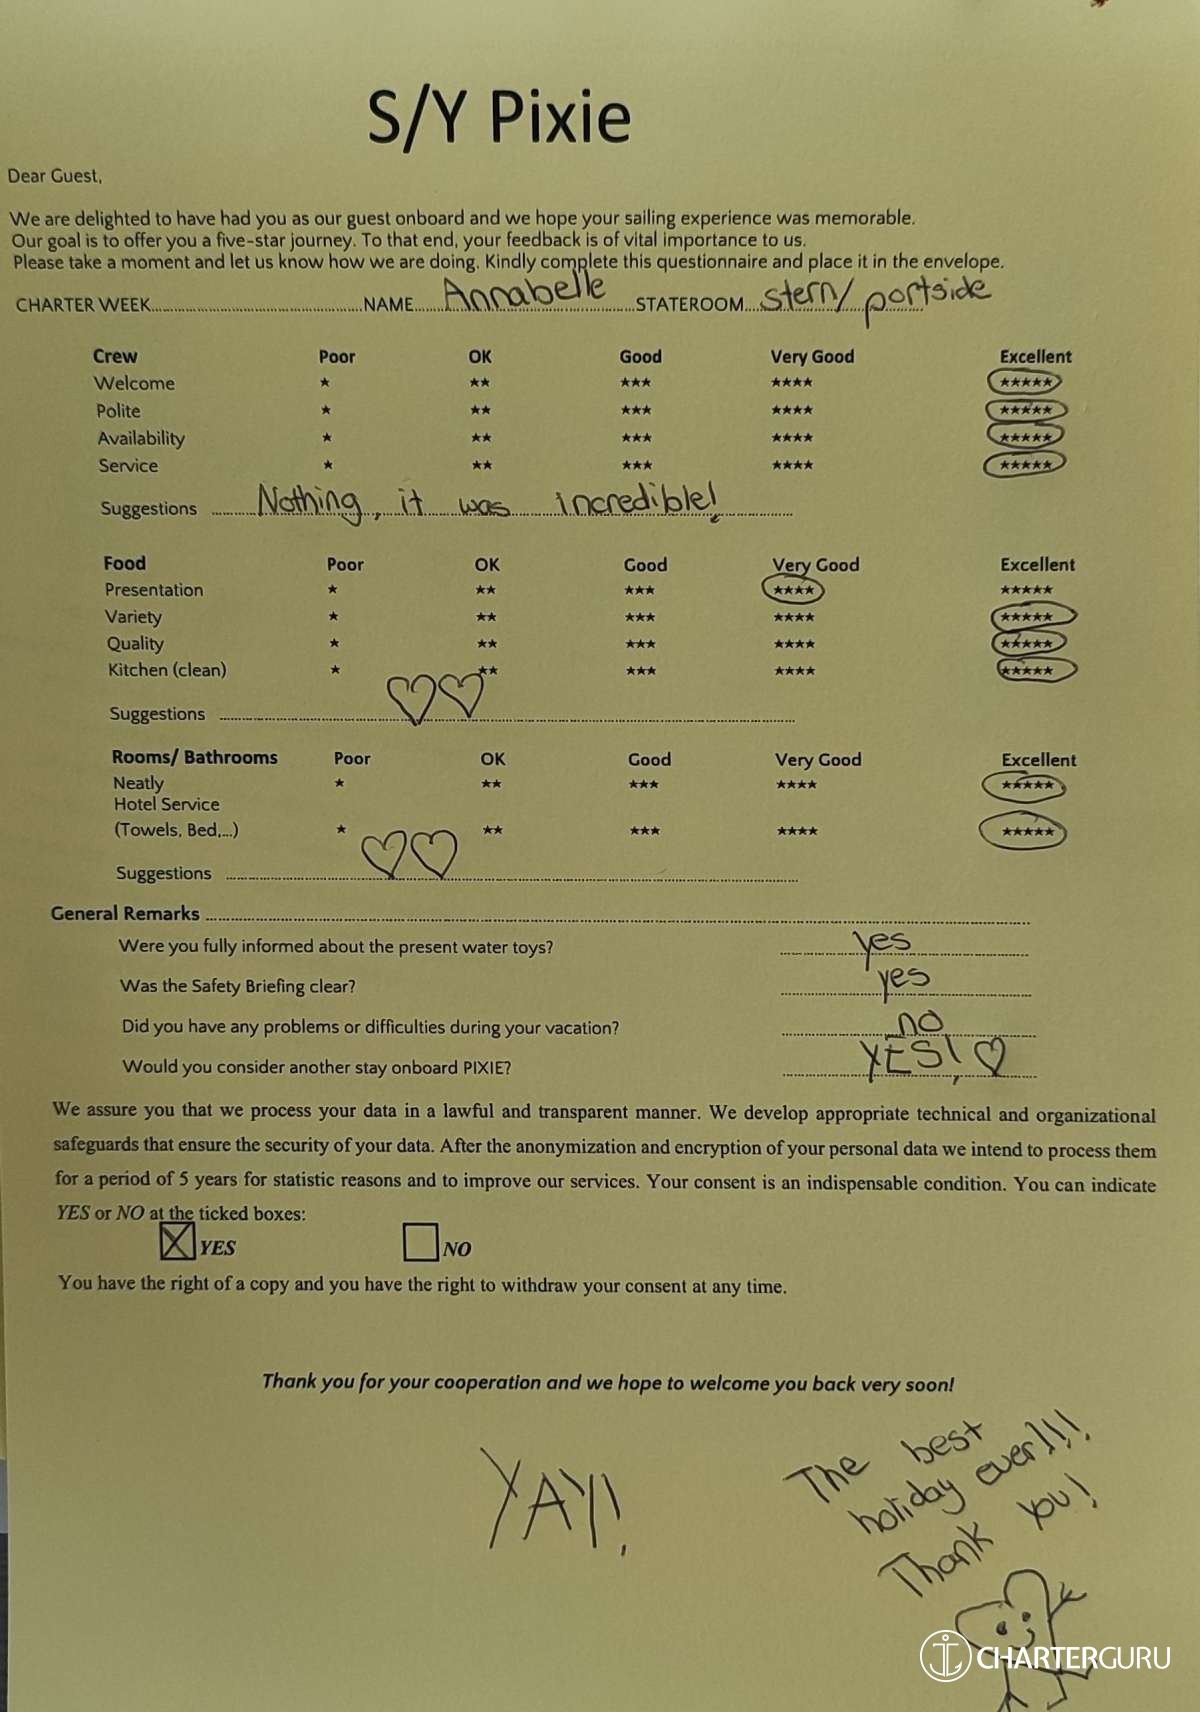 S/Y Pixie
Dear Guest,
We are delighted to have had you as our guest onboard and we hope your sailing experience was memorable.
Our goal is to offer you a five-star journey. To that end, your feedback is of vital importance to us.
Please take a moment and let us know how we are doing. Kindly complete this questionnaire and place it in the envelope.
CHARTER WEEK NAME Annabelle STATEROOM stern/ portside
Crew Poor OK Good Very Good Excellent
Welcome ★ ★★ ★★★ ★★★★ ★★★★★
Polite ★ ★★ ★★★ ★★★★ ★★★★★
Availability ★ ★★ ★★★ ★★★★ ★★★★★
Service ★ ★★ ★★★ ★★★★ ★★★★★
Suggestions Nothing, it was incredible!
Food Poor OK Good Very Good Excellent
Presentation ★ ★★ ★★★ ★★★★ ★★★★★
Variety ★ ★★ ★★★ ★★★★ ★★★★★
Quality ★ ★★ ★★★ ★★★★ ★★★★★
Kitchen (clean) ★ ★★ ★★★ ★★★★ ★★★★★
Suggestions ♡♡
Rooms/ Bathrooms Poor OK Good Very Good Excellent
Neatly ★ ★★ ★★★ ★★★★ ★★★★★
Hotel Service
(Towels, Bed,...) ★ ★★ ★★★ ★★★★ ★★★★★
Suggestions ♡♡
General Remarks
Were you fully informed about the present water toys? yes
Was the Safety Briefing clear? yes
Did you have any problems or difficulties during your vacation? no
Would you consider another stay onboard PIXIE? YES! ♡
We assure you that we process your data in a lawful and transparent manner. We develop appropriate technical and organizational
safeguards that ensure the security of your data. After the anonymization and encryption of your personal data we intend to process them
for a period of 5 years for statistic reasons and to improve our services. Your consent is an indispensable condition. You can indicate
YES or NO at the ticked boxes:
☒ YES ☐ NO
You have the right of a copy and you have the right to withdraw your consent at any time.
Thank you for your cooperation and we hope to welcome you back very soon!
YAY!
The best
holiday ever!!!
Thank you!
CHARTERGURU